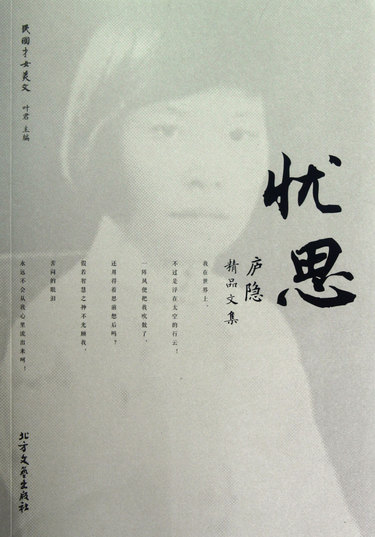 民国才女美文
叶君 主编
忧思
庐隐
精品文集
我在世界上，
不过是浮在太空的行云！
一阵风便把我吹散了，
还用得着思前想后吗？
假若智慧之神不光顾我，
苦闷的眼泪
永远不会从我心里流出来呵！
北方文艺出版社